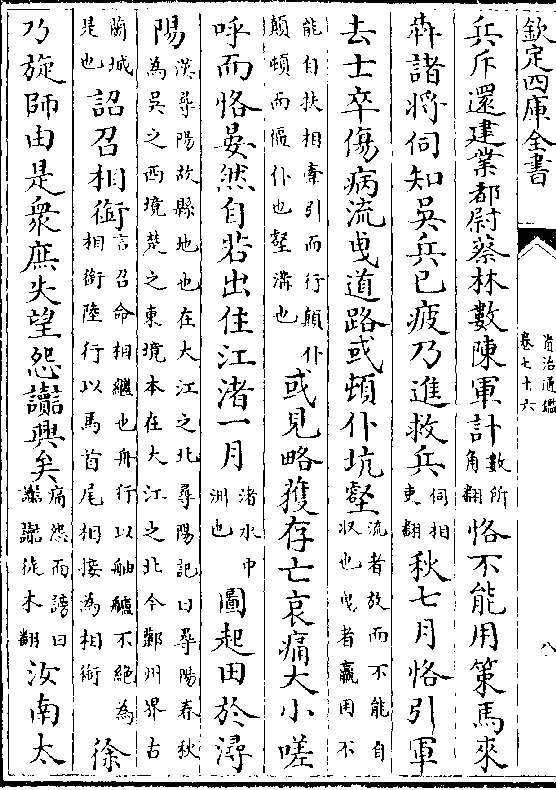 欽定四庫全書
資治通鑑
卷七十六
八
兵斥還建業都尉蔡林數陳軍計數所角翻恪不能用策馬來
犇諸將伺知吳兵已疲乃進救兵伺相吏翻秋七月恪引軍
去士卒傷病流曳道路或頓仆坑壑流者放而不能自收也曳者羸困不
能自扶相牽引而行顛仆顛頓而僵仆也壑溝也或見略獲存亡哀痛大小嗟
呼而恪晏然自若出住江渚一月渚水中洲也圖起田於潯
陽漢尋陽故縣地也在大江之北尋陽記曰尋陽春秋為吳之西境楚之東境本在大江之北今鄿州界古
蘭城是也詔召相銜言召命相繼也舟行以舳艫不絕為相銜陸行以馬首尾相接為相銜徐
乃旋師由是衆庶失望怨讟興矣痛怨而謗曰讟讟徒木翻汝南太